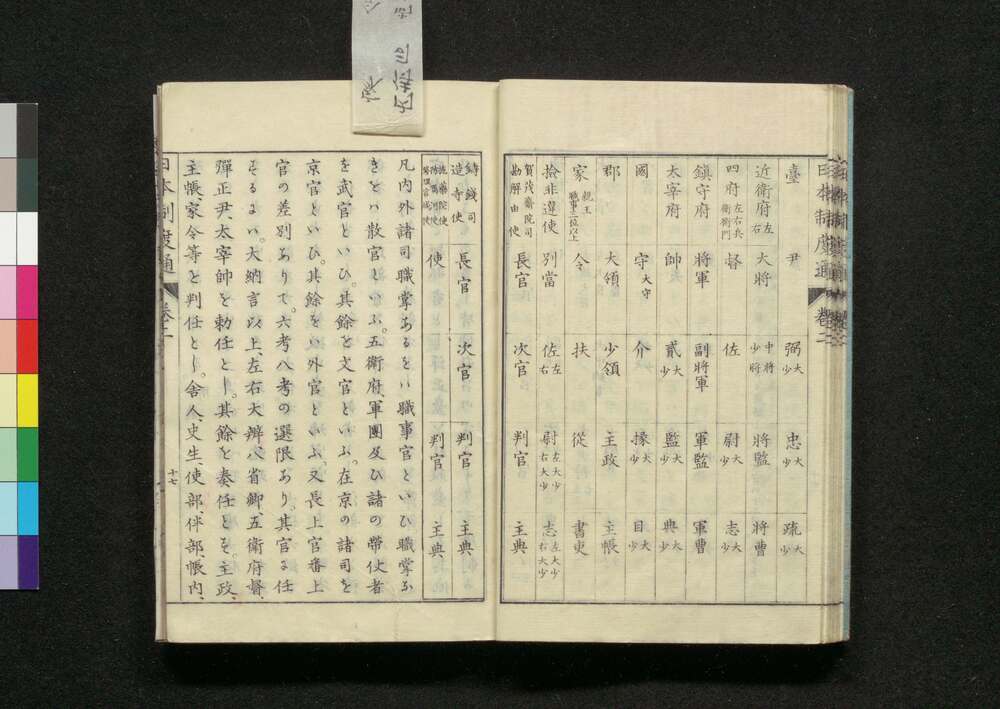 日本制度通 卷二
臺 尹 弼大少 忠大少 疏大少
近衛府左右 大將 中將少將 將監 將曹
四府左右兵衛衛門 督 佐 尉大少 志大少
鎭守府 將軍 副將軍 軍監 軍曹
太宰府 帥 貳大少 監大少 典大少
國 守大守 介 掾大少 目大少
郡 大領 少領 主政 主帳
家親王職事三位以上 令 扶 從 書吏
撿非違使 別當 佐左右 尉左大少右大少 志左大少右大少
賀茂齋院司勘解由使 長官 次官 判官 主典
鑄錢司造寺使 長官 次官 判官 主典
使 判官 主典
凡内外諸司職掌あるをハ職事官といひ職掌な
きとハ散官といふ。五衛府、軍團及ひ諸の帶仗者
を武官といひ。其餘を文官といふ。在京の諸司を
京官といひ。其餘をハ外官といふ。又長上官番上
官の差別ありて。六考八考の選限あり。其官に任
するにハ。大納言以上、左右大辨八省卿五衛府督、
彈正尹、太宰帥を勅任とし。其餘を奏任とす。主政、
主帳、家令等を判任とし。舍人、史生、使部、伴部、帳内、
日本制度通 卷二
十七